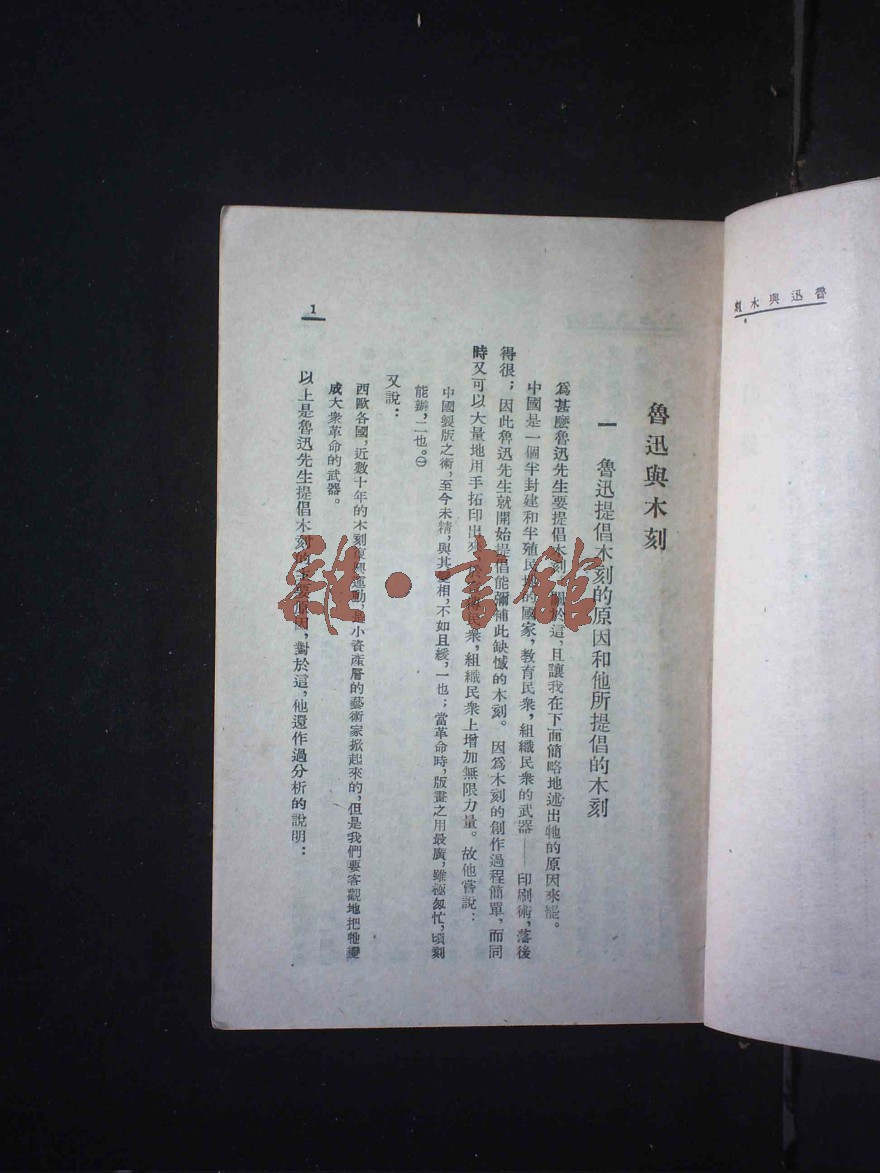 魯迅與木刻
魯迅與木刻
一 魯迅提倡木刻的原因和他所提倡的木刻
爲甚麼魯迅先生要提倡木刻?關於這,且讓我在下面簡略地述出牠的原因來罷。
中國是一個半封建和半殖民地的國家,教育民衆,組織民衆的武器——印刷術,落後
得很;因此魯迅先生就開始提倡能彌補此缺憾的木刻。因爲木刻的創作過程簡單,而同
時又可以大量地用手拓印出來,民衆,組織民衆上增加無限力量。故他嘗說:
中國製版之術,至今未精,與其變相,不如且緩,一也;當革命時,版畫之用最廣,雖極匆忙,頃刻
能辦,二也。㊀
又說:
西歐各國,近數十年的木刻復興運動,是小資產層的藝術家掀起來的,但是我們要客觀地把牠變
成大衆革命的武器。
以上是魯迅先生提倡木刻的主要原因,對於這,他還作過分析的說明:
1
雜·書館